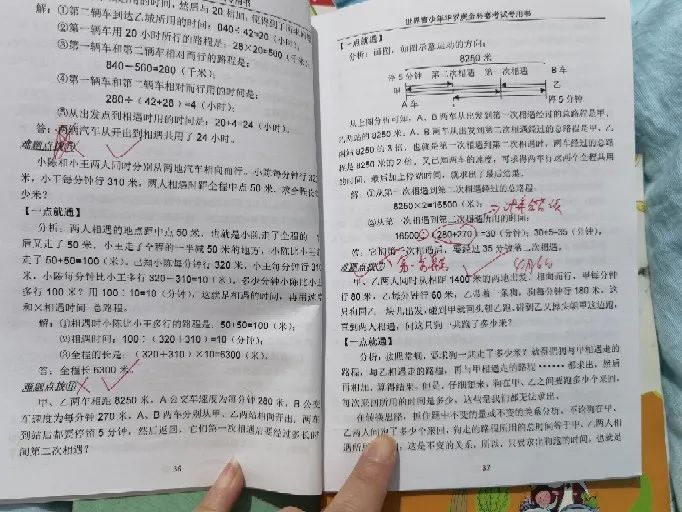 解：①第二辆车到达乙球所用的时间：840÷42=20（小时）。
②第一辆车用 20 小时所行的路程是：28×20=560（千米）。
③第一辆车和第二辆车相对而行的路程是：
840－560=280（千米）；
④第一辆车和第二辆车相对而行用的时间是：
280÷（42+28）=4（小时）；
⑤从出发点到相遇时用的时间是：20+4=24（小时）。
答：两辆汽车从开出到相遇共用了 24 小时。
难题点拨
小陈和小王两人同时分别从两地汽车相向而行。小陈每分钟行
米，小王每分钟行 310 米，两人相遇时距全程中点 50 米，求全程长
少米？
【一点就通】
分析：两人相遇的地点距中点 50 米，也就是小陈走了全程的一
后又走了 50 米，小王走了全程的一半减 50 米的地方，小陈比小王
走了 50+50=100（米）。已知小陈每分钟行 320 米，小王每分钟行 310
米，小陈每分钟比小王多行 320－310=10（米），多少分钟小陈比小王
多行 100 米？用 100÷10=10（分钟），这就是相遇的时间，再用速
和×相遇时间 总路程。
解：①相遇时小陈比小王多行的路程是：50+50=100（米）；
②相遇时间：100÷（320－310）=10（分钟）；
③全程的长是：（320+310）×10=6300（米）。
答：全程长 6300 米。
难题点拨
甲、乙两车站相距 8250 米，A 公交车速度为每分钟 280 米，B 公交
车速度为每分钟 270 米，A、B 两车分别从甲、乙两站相向开出，两车
到站后都要停留 5 分钟，然后返回，它们第一次相遇后要经过多长时
间第二次相遇？
36
世界青少年华罗庚金杯赛考试专用书
【一点就通】
分析：画图，如图示意运动的方向：
8250 米
停 5 分钟 第二次相遇 第一次相遇 B 车
甲 乙
A 车 停 5 分钟
从上图分析可知，A、B 两车从出发到第一次相遇经过的总路程是甲、
乙两站的 8250 米，A、B 两车从出发到第二次相遇经过的总路程是甲、乙
两站 8250 的 3 倍，也就是第一次相遇到第二次相遇时，两车经过的总路
程是 8250 米的 2 倍。又已知两车的速度，可求得两车行这两个全程共用
的时间，最后加上停站时间，就求出了最后结果。
解：①从第一次相遇到第二次相遇经过的总路程：
8250×2=16500（米）；
②从第一次相遇到第二次相遇所用的时间：
16500÷（280+270）=30（分钟）；30+5=35（分钟）
答：它们第一次相遇后，要经过 35 分钟第二次相遇。
难题点拨
甲、乙两人同时从相距 1400 米的两地出发，相向而行，甲每分钟
行 80 米，乙每分钟行 60 米，乙带着一条狗，狗每分钟行 180 米，这
只狗同乙一块儿出发，碰到甲就回头朝乙跑，碰到乙又掉头朝甲这边跑，
直到两人相遇，问这只狗一共跑了多少米？
【一点就通】
分析：按照常规，要求狗一共走了多少米？就得把狗与甲相遇走的
路程，与乙相遇走的路程，再与甲相遇走的路程……都求出，然后
再相加，算得结果。但是，仔细想来，狗在甲、乙之间要跑多少个来回，
每次来回所用的时间是多少，这些量我们都无法求出。
在转换思路，抓住题中不变的量或不变的关系分析，不论狗在甲、
乙两人间跑了多少个来回，狗走的路程所用的总时间等于甲、乙两人相
遇所用 ，这是不变的关系，所以，只要求出狗跑的时间，也就是
37